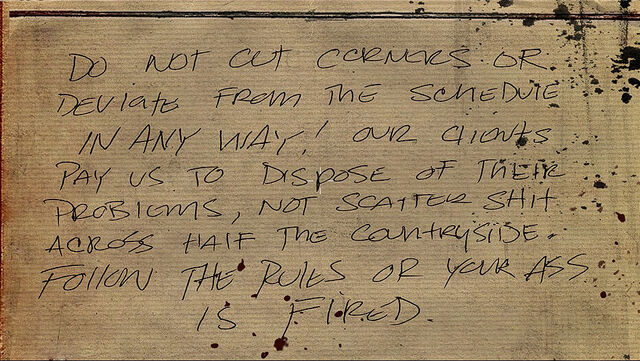 DO NOT CUT CORNERS OR
DEVIATE FROM THE SCHEDULE
IN ANY WAY! OUR CLIENTS
PAY US TO DISPOSE OF THEIR
PROBLEMS, NOT SCATTER SHIT
ACROSS HALF THE COUNTRYSIDE.
FOLLOW THE RULES OR YOUR ASS
IS FIRED.